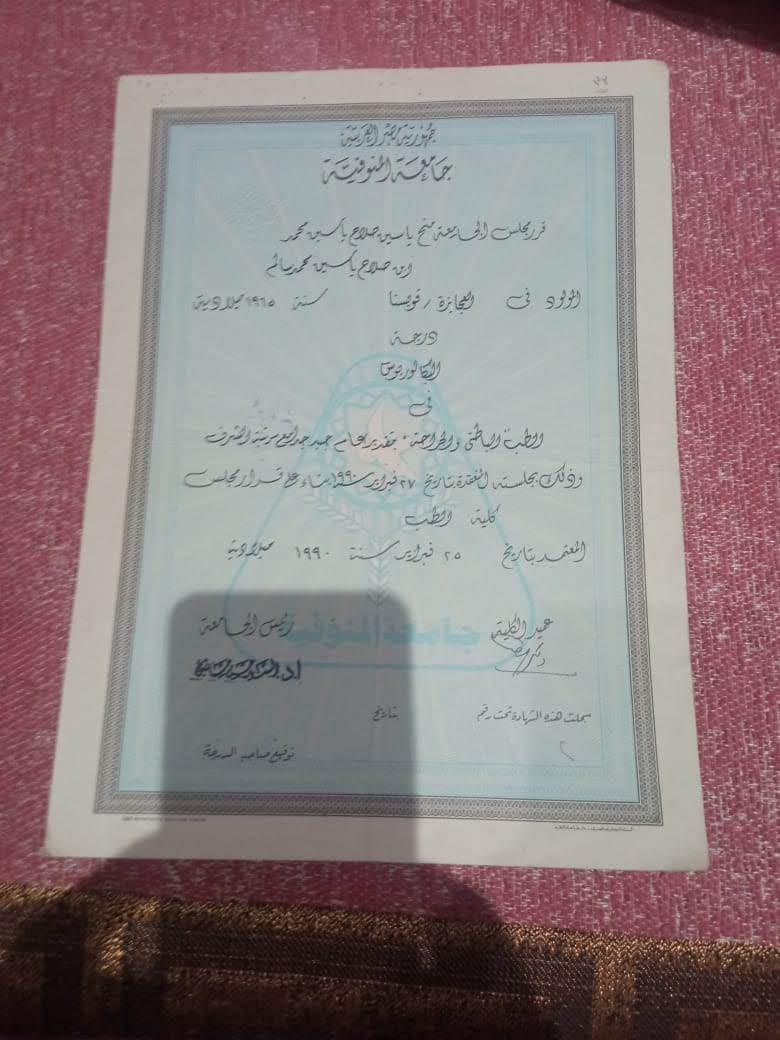 جمهورية مصر العربية
جامعة المنوفية
قرر مجلس الجامعة منح ياسين صلاح ياسين محمد
ابن صلاح ياسين محمد سالم
المولود فى العجايزة / قويسنا سنة ١٩٦٥ ميلادية
درجة
البكالوريوس
فى
الطب الباطنى والجراحة بتقدير عام جيد جدا مع مرتبة الشرف
وذلك بجلسته المنعقدة بتاريخ ٢٧ فبراير ١٩٩٠ بناء على قرار مجلس
كلية الطب
المعتمد بتاريخ ٢٥ فبراير سنة ١٩٩٠ ميلادية
جامعة المنوفية
عميد الكلية رئيس الجامعة
أ.د.
سجلت هذه الشهادة تحت رقم بتاريخ
٢ توقيع صاحب الدرجة